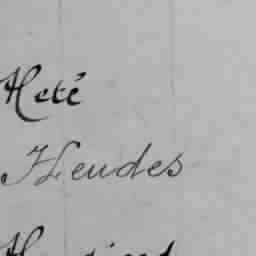 Heté
Heudes